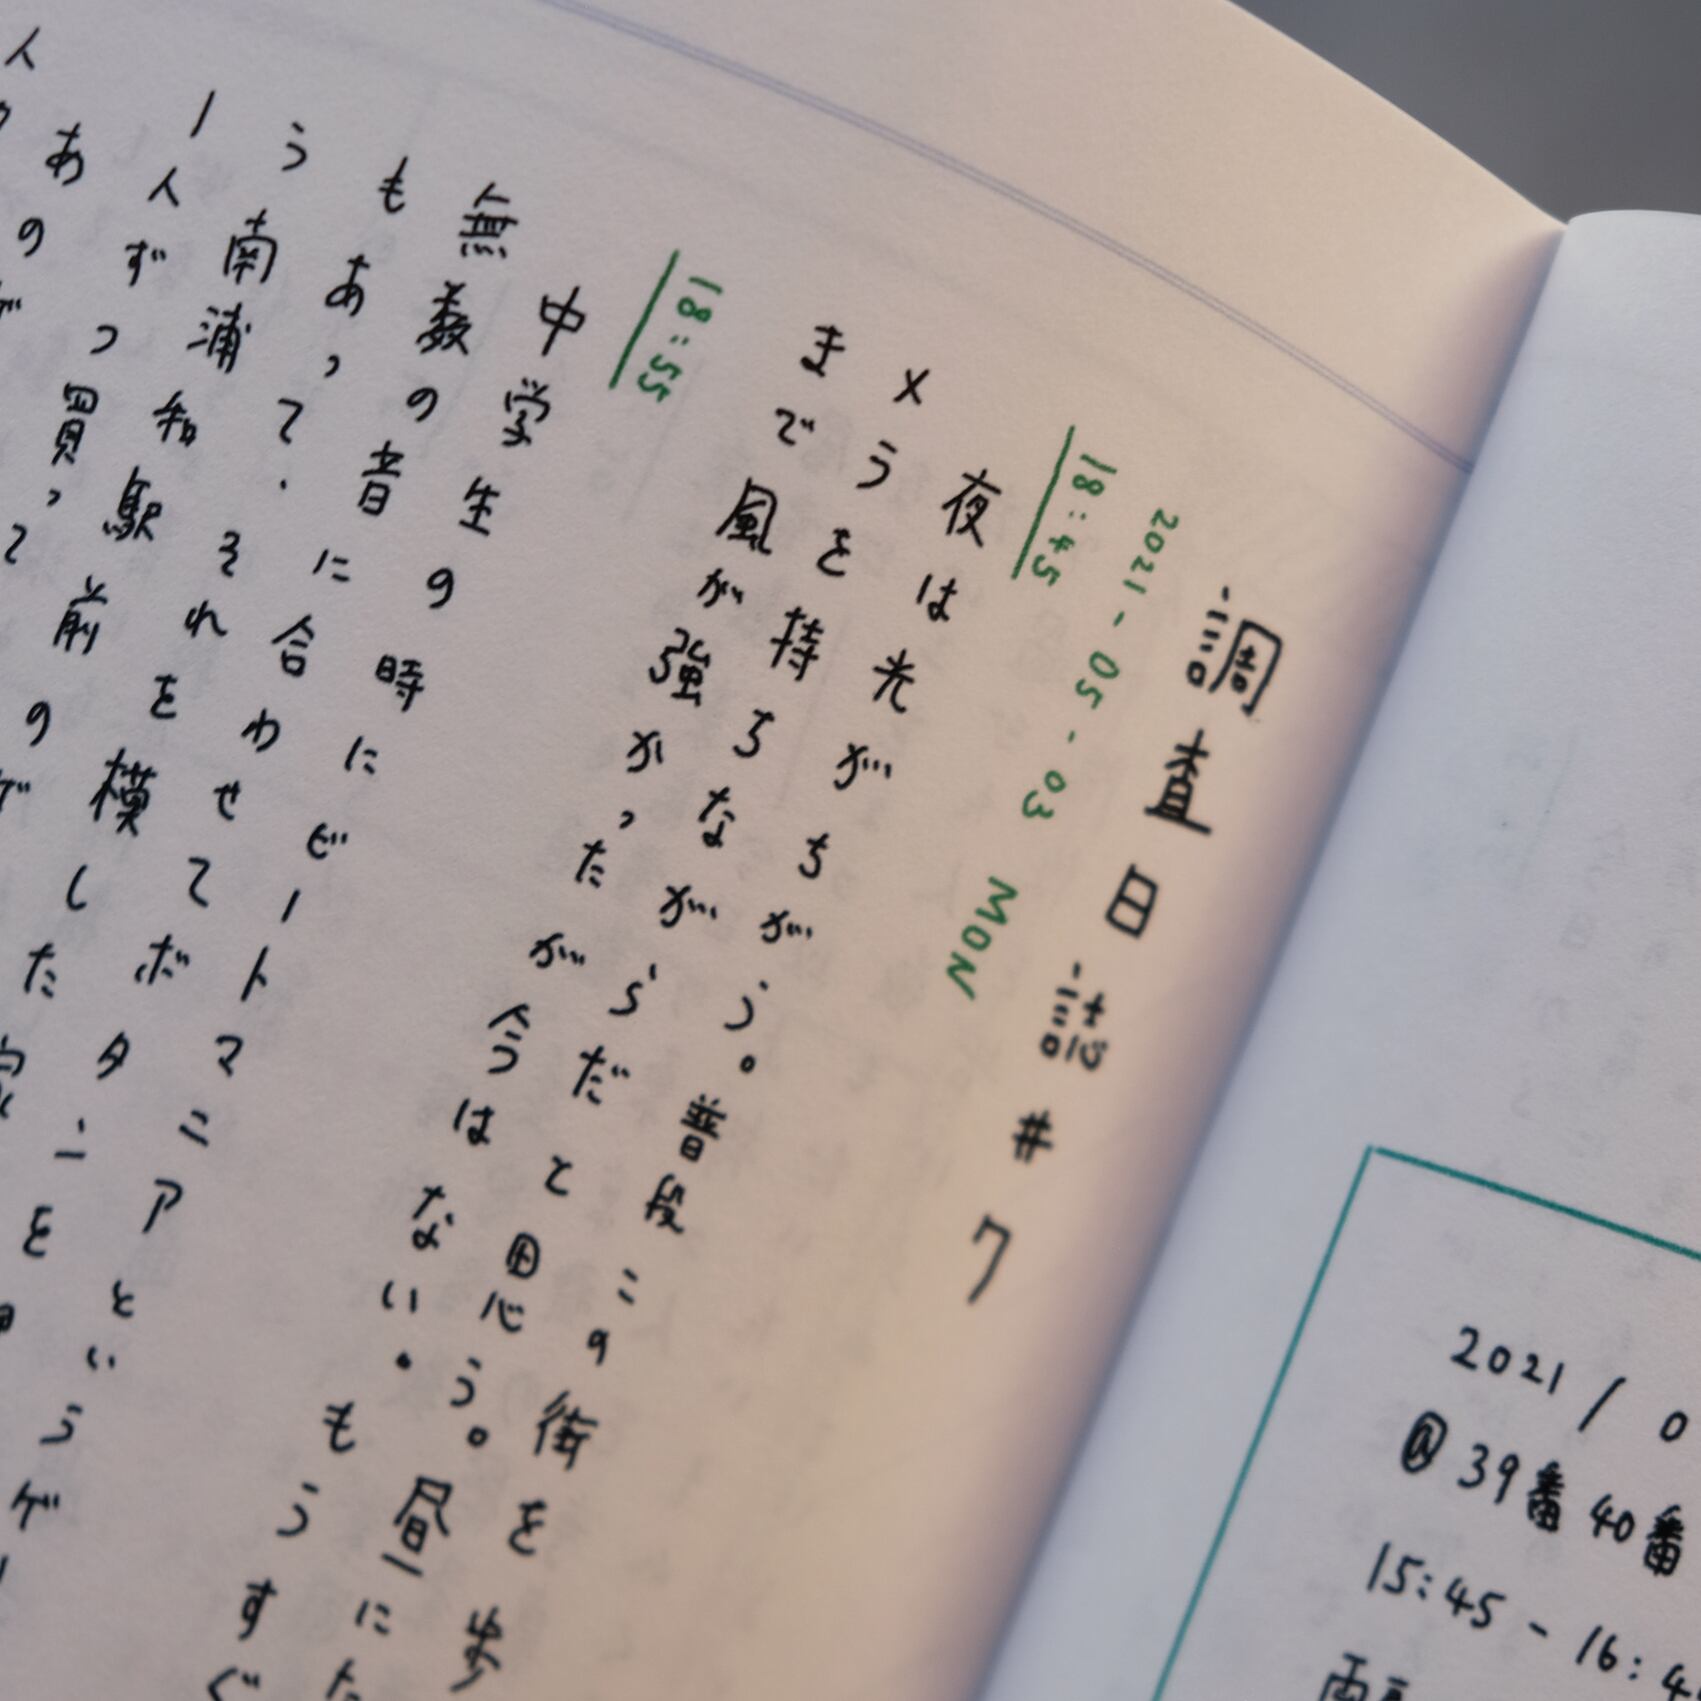 調査日誌#7
2021-05-03 MON
18:45
夜は光がちがう。普段この街を歩
メうを持ちながらだと思う。昼にた
まで風が強かったが今はない。もうすぐ
18:55
中学生の時にビートマニアというゲー
無数の音に合わせてボタンを
もあって.それを模した
う南浦和駅前のゲ
1人ずつ買って
あのゲ
人
2021/0
@39番40番
15:45-16:4